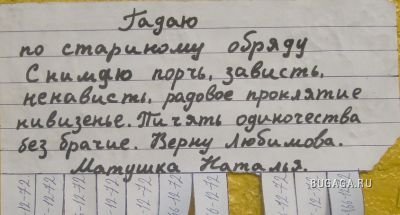 Гадаю
по стариному обряду
Снимаю порчь, зависть,
ненависть, радовое проклятие
нивизенье. Пичять одиночества
без брачие. Верну Любимова.
Матушка Наталья.
BUGAGA.RU
-12-72
-12-72
-12-72
-12-72
6-12-72